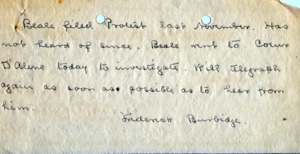 Beale filed Protest last November. Has
not heard of since. Beale went to Coeur
D'Alene today to investigate. Will Telegraph
again as soon as possible as to hear from
him.
Frederick Burbidge.